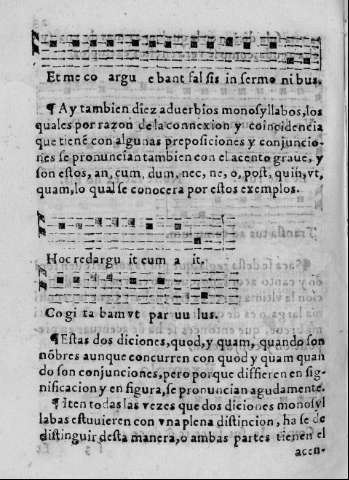 Et me co argu e bant fal sis in sermo ni bus.
¶ Ay tambien diez aduerbios monosyllabos, los
quales por razon de la connexion y coincidencia
que tienē con algunas preposiciones y conjuncio-
nes se pronuncian tambien con el acento graue, y
son estos, an, cum, dum, nec, ne, o, post, quin, vt,
quam, lo qual se conocera por estos exemplos.
Hoc redargu it cum a it.
Co gi ta bam vt par uu lus.
¶ Estas dos diciones, quod, y quam, quando son
nōbres aunque concurren con quod y quam quan
do son conjunciones, pero porque diffieren en sig-
nificacion y en figura, se pronuncian agudamente.
¶ Iten todas las vezes que dos diciones monosyl
labas estuuieren con vna plena distincion, ha se de
distinguir desta manera, o ambas partes tienen el
acen-